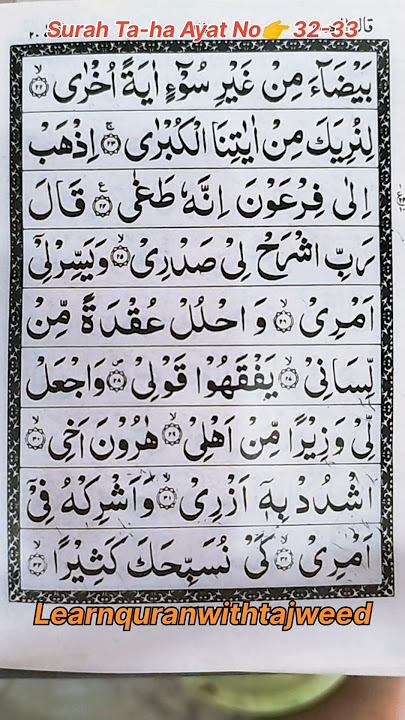 Surah Ta-ha Ayat No👉 32-33
بَيْضَآءَ مِنْ غَيْرِ سُوْٓءٍ اٰيَةً اُخْرٰى ۙ﴿۲۲﴾
لِنُرِيَكَ مِنْ اٰيٰتِنَا الْكُبْرٰى ۚ﴿۲۳﴾ اِذْهَبْ
اِلٰى فِرْعَوْنَ اِنَّهٗ طَغٰى ﴿۲۴﴾ۧ قَالَ
رَبِّ اشْرَحْ لِىْ صَدْرِىْ ۙ﴿۲۵﴾ وَيَسِّرْ لِىْۤ
اَمْرِىْ ۙ﴿۲۶﴾ وَ احْلُلْ عُقْدَةً مِّنْ
لِّسَانِىْ ۙ﴿۲۷﴾ يَفْقَهُوْا قَوْلِىْ ﴿۲۸﴾ وَاجْعَلْ
لِّىْ وَزِيْرًا مِّنْ اَهْلِىْ ۙ﴿۲۹﴾ هٰرُوْنَ اَخِى ۙ﴿۳۰﴾
اشْدُدْ بِهٖۤ اَزْرِىْ ۙ﴿۳۱﴾ وَاَشْرِكْهُ فِىْۤ
اَمْرِىْ ۙ﴿۳۲﴾ كَىْ نُسَبِّحَكَ كَثِيْرًا ۙ﴿۳۳﴾
Learnquranwithtajweed